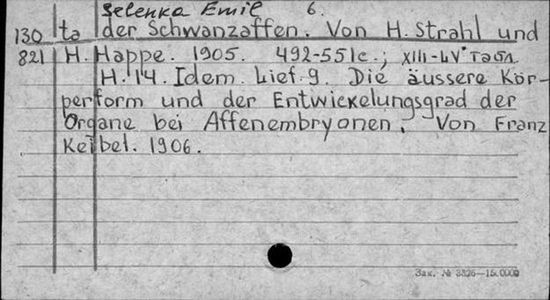 Selenka Emil 6.
130 ta der Schwanzaffen. Von H. Strahl und
821 H. Happe. 1905. 492-551c.; XIII-LV табл.
H. 14. Idem. Lief. 9. Die äussere Kör-
perform und der Entwickelungsgrad der
Organe bei Affenembryonen. Von Franz
Keibel. 1906.
Зак. № 3826—15.000